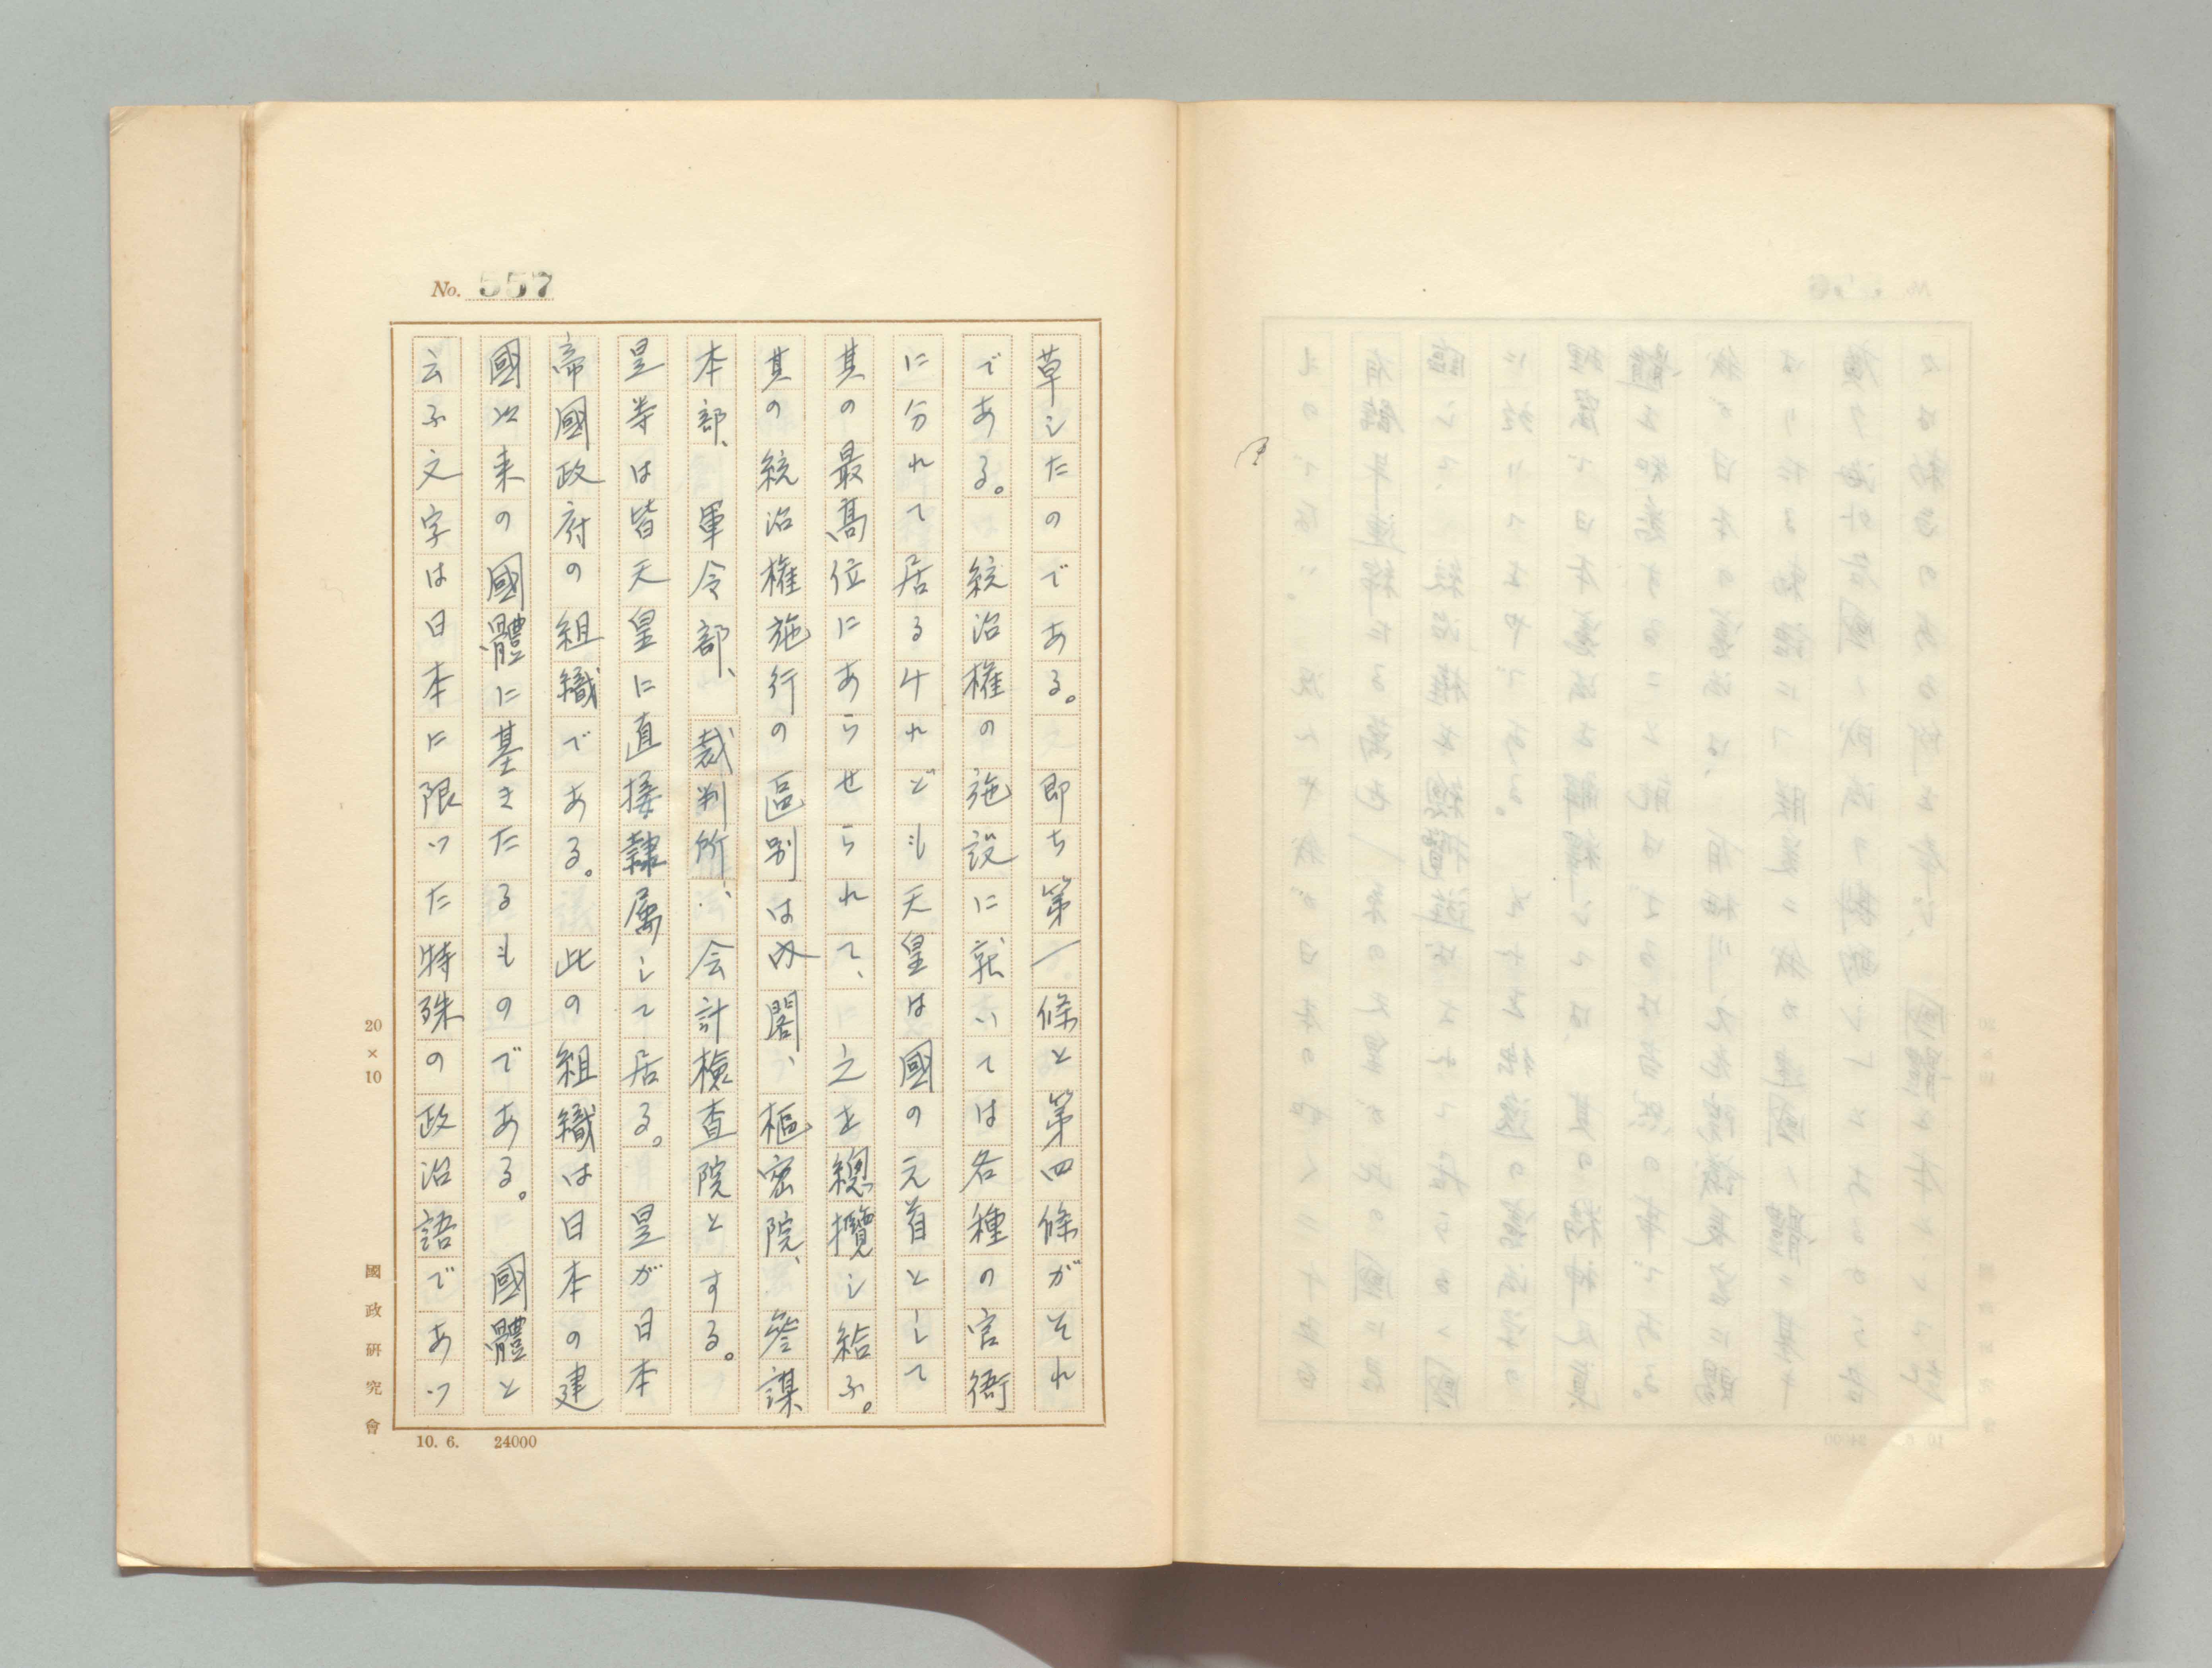 No. 557
草したのである。即ち第一條と第四條がそれ
である。統治權の施設に就いては各種の官衙
に分れて居るけれども天皇は國の元首として
其の最高位にあらせられて、之を總攬し給ふ。
其の統治權施行の區別は内閣、樞密院、參謀
本部、軍令部、裁判所、会計檢査院とする。
是等は皆天皇に直接隷属して居る。是が日本
帝國政府の組織である。此の組織は日本の建
國以来の國體に基きたるものである。國體と
云ふ文字は日本に限いた特殊の政治語であつ
20×10
國政研究會
10. 6. 24000